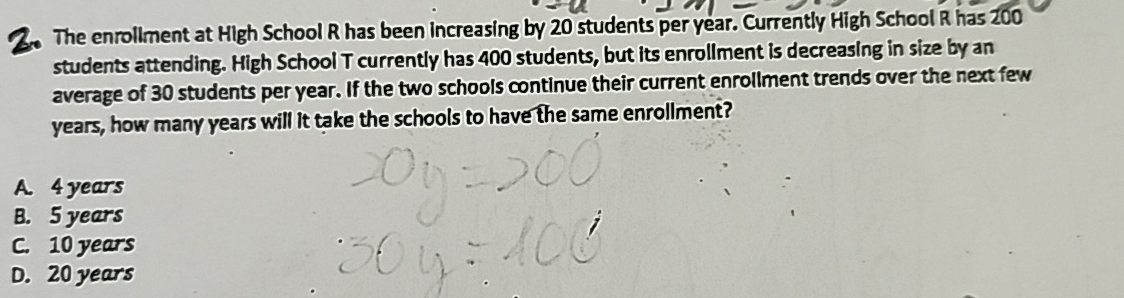 2. The enrollment at High School R has been increasing by 20 students per year. Currently High School R has 200
students attending. High School T currently has 400 students, but its enrollment is decreasing in size by an
average of 30 students per year. If the two schools continue their current enrollment trends over the next few
years, how many years will it take the schools to have the same enrollment?
20y=200
30y=400
A. 4 years
B. 5 years
C. 10 years
D. 20 years